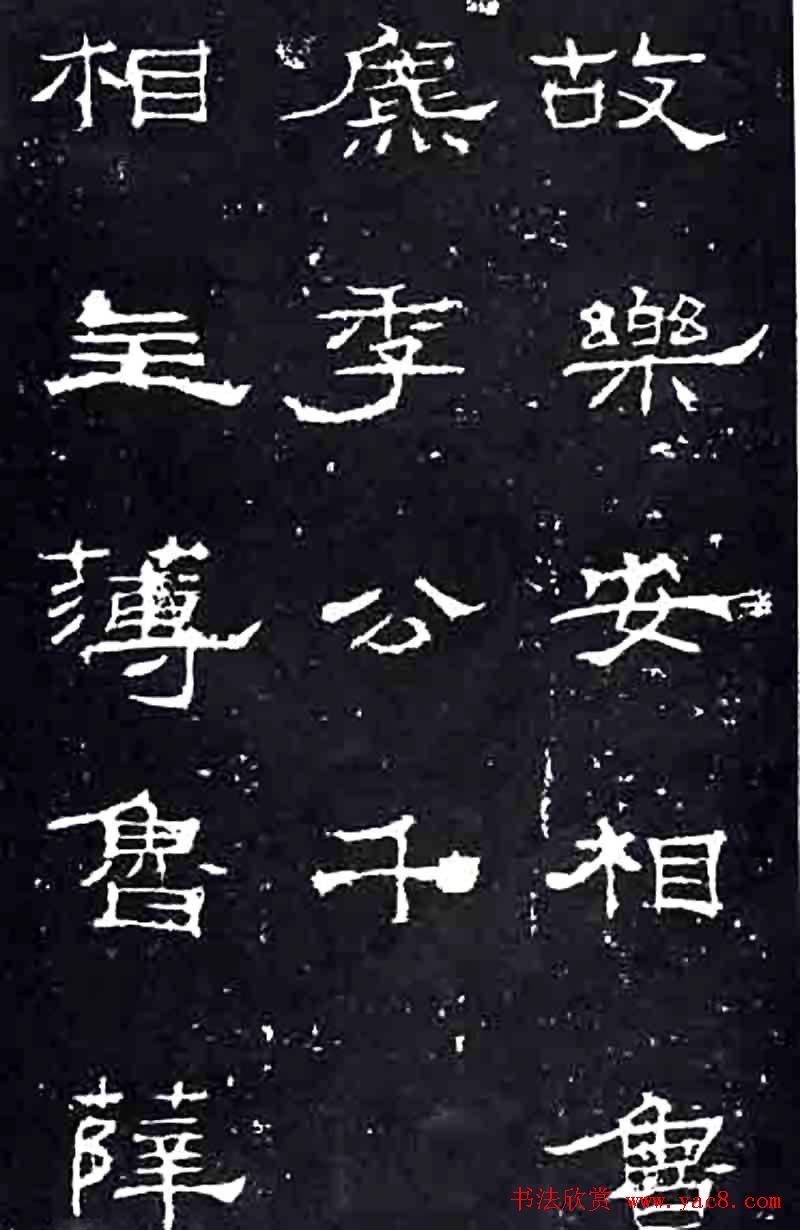 故樂安相魯
麃季公千
相主薄魯薛
书法欣赏 www.yac8.com